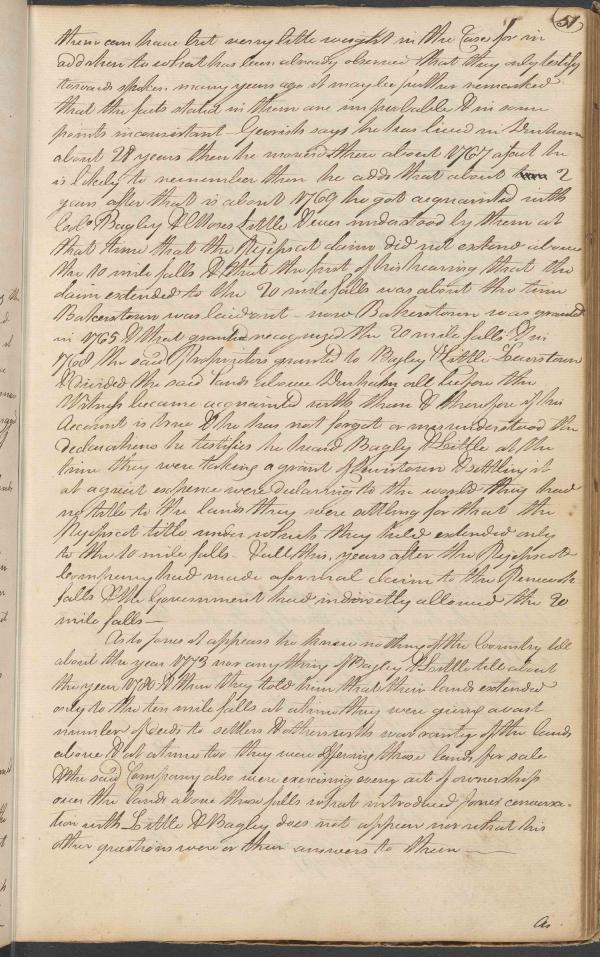 51
them can have but very little weight in the Case for in
addition to what has been already observed that they only testify
towards spoken many years ago it may be further remarked
that the facts stated in them are improbable & in some
points inconsistant – Gerrish says he has lived in Durham
about 28 years then he moved there about 1767 about he
is likely to remember then he adds that about 2
years after that is about 1769 he got acquainted with
Colo Bagley & Moses Little & ever understood by them at
that time that the Pejepscot claim did not extend above
the 10 mile falls & that the first of his hearing that the
claim extended to the 20 mile falls was about the time
Bakerstown was laid out – now Bakerstown was granted
in 1765 & that grant recognized the 20 mile falls & in
1768 the said Proprietors granted to Bagley & Little Lewistown
& divided the said Lands above Durham all before the
Witness became acquainted with them & therefore if his
Account is true & he has not forgot or misunderstood the
declarations he testifies he heard Bagley & Little at the
time they were taking a grant of Lewistown & settling it
at a great expence were declaring to the world they had
no title to the lands they were settling for that the
Pejepscot title under which they held extended only
to the 10 mile falls – & all this, years after the Pejepscot
Company had made a formal claim to the
falls & the Government had indirectly allowed the 20
mile falls –
As to Jones it appears he knew nothing of the Country till
about the year 1773 nor any thing of Bagley & Little till about
the year 1780 & then they told him that their lands extended
only to the ten mile falls at a time they were giving a vast
number of deeds to settlers & others with warranty of the lands
above & at a time too they were offering those lands for sale
& the said Company also were exercising every act of ownership
over the lands above those falls what introduced Jones' conversa-
tion with Little & Bagley does not appear nor what his
other questions were or their answers to them –
As